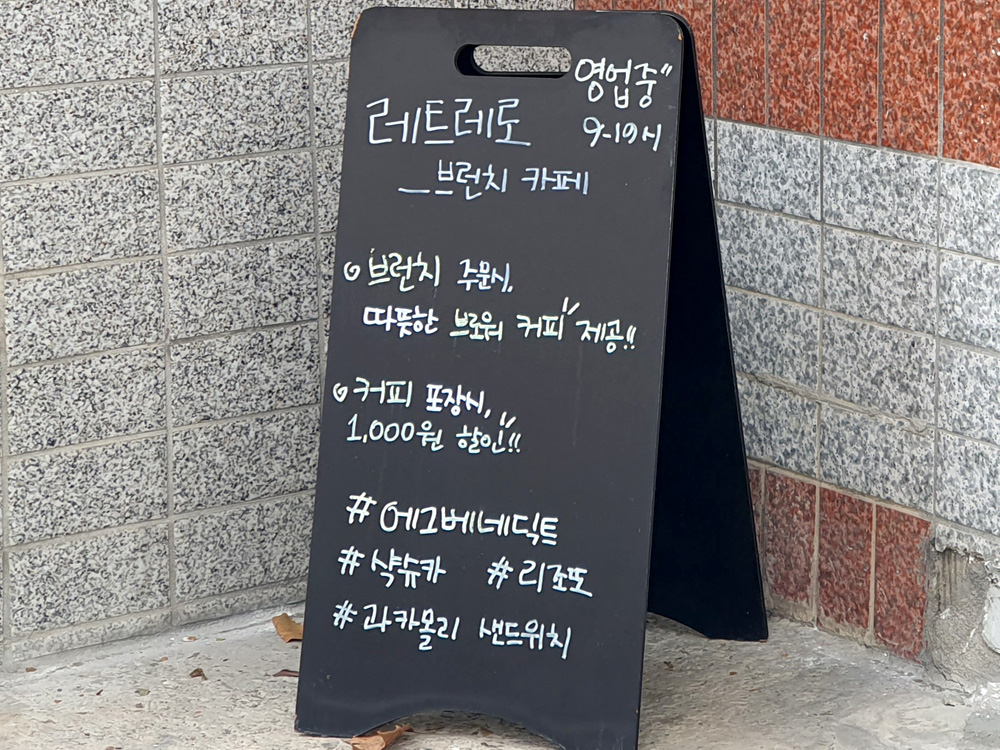 영업중"
9-19시
레트레토
_브런치 카페
브런치 주문시,
따뜻한 브로워 커피" 제공!!
커피 포장시,
1,000원 할인"!!
#에그베네딕트
#샥슈카 #리조또
#과카몰리 샌드위치